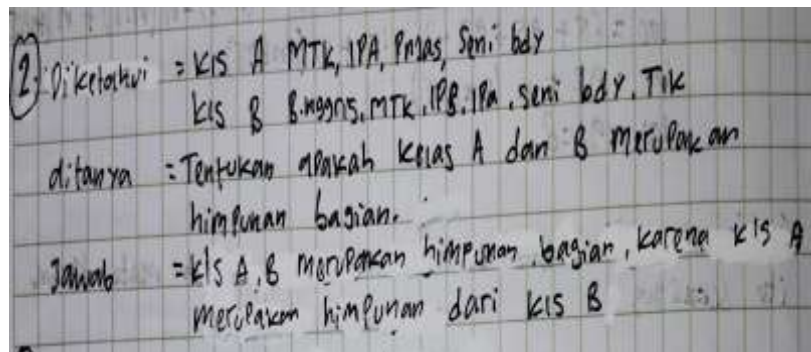 2. Diketahui = Kls A MTK, IPA, Pnjas, Seni bdy
Kls B B.nggris, MTK, IPB, IPa, seni bdy, TIK
ditanya = Tentukan apakah Kelas A dan B Merupakan
himpunan bagian.
Jawab = kls A, B merupakan himpunan bagian, karena kls A
merupakan himpunan dari kls B